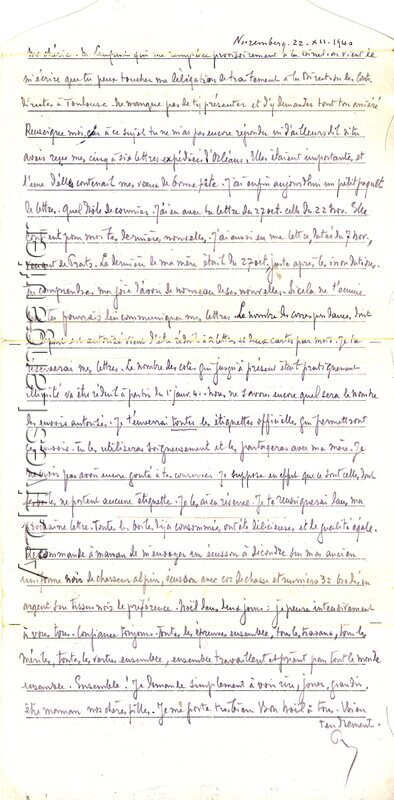 Nuremberg. 22. XII. 1940
Ma chérie. M. Lenfant qui me remplace provisoirement à la Direction vient de
m'écrire que tu peux toucher ma délégation de traitement à la Direction des Cont.
Directes à Toulouse. Ne manque pas de t'y présenter et d'y demander tout ton arriéré
Renseigne moi, car à ce sujet tu ne m'as pas encore répondu ni d'ailleurs dit si tu
avais reçu mes cinq à six lettres expédiées d'Orléans. Elles étaient importantes, et
l'une d'elles contenait mes vœux de bonne fête. J'ai enfin aujourd'hui un petit paquet
de lettres. Quel drôle de courrier. J'ai eu avec ta lettre du 27 oct. celle du 22 nov. Elle
pour moi tes dernières nouvelles. J'ai aussi eu une lettre, datée du 7 nov.,
venant de Prats. La dernière de ma mère était du 27 oct. juste après les inondations.
Tu comprendras ma joie d'avoir de nouveau de ses nouvelles. Si cela ne t'ennuie
tu pourrais lui communiquer mes lettres. Le nombre des correspondances, dont
est autorisé vient d'être réduit à 2 lettres et deux cartes par mois. Je te
réserverai mes lettres. Le nombre des colis, qui jusqu'à présent était pratiquement
illimité va être réduit à partir du 1er janv. 41. Nous ne savons encore quel sera le nombre
des envois autorisés. Je t'enverrai toutes les étiquettes officielles qui permettront
ces envois. Tu les utiliseras soigneusement et les partageras avec ma mère. Je
ne crois pas avoir encore goûté à tes conserves. Je suppose en effet que ce sont celles, dont
les boites ne portent aucune étiquette. Je les ai en réserve. Je te renseignerai dans ma
prochaine lettre. Toutes les boites déjà consommées, ont été délicieuses, et de qualité égale.
Recommande à maman de m'envoyer un écusson à découdre sur mes anciens
uniformes noirs de chasseur alpin, écusson avec cor de chasse et numéro 32 brodés en
argent sur tissu noir de préférence. Noël dans deux jours : je pense intensivement
à vous tous. Confiance toujours. Toutes les épreuves ensemble, tous les travaux, tous les
mérites, toutes les vertus ensemble, ensemble travaillent et prient pour tout le monde
ensemble. Ensemble ! Je demande simplement à voir rire, jouer, grandir,
être maman nos chères filles. Je me porte très bien. Bon Noël à tous. Bien
tendrement.